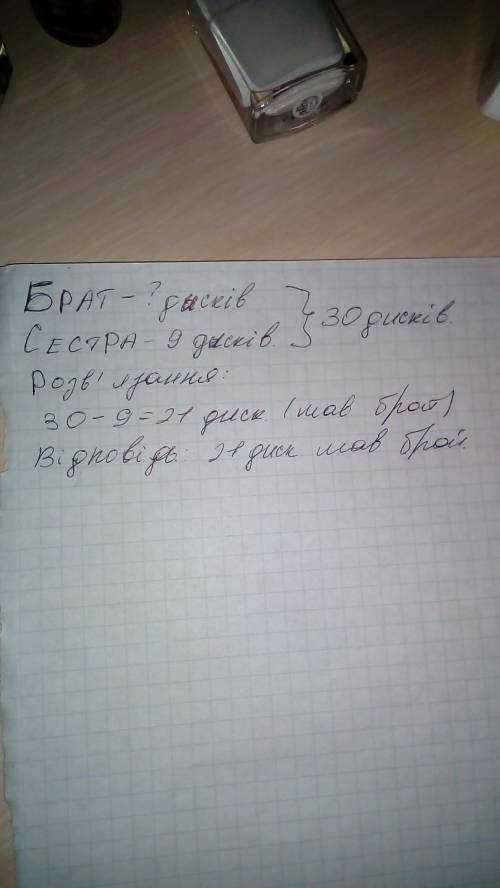 БРАТ - ? дисків
СЕСТРА - 9 дисків. } 30 дисків.
Розв'язання:
30 - 9 = 21 диск (мав брат)
Відповідь: 21 диск мав брат.